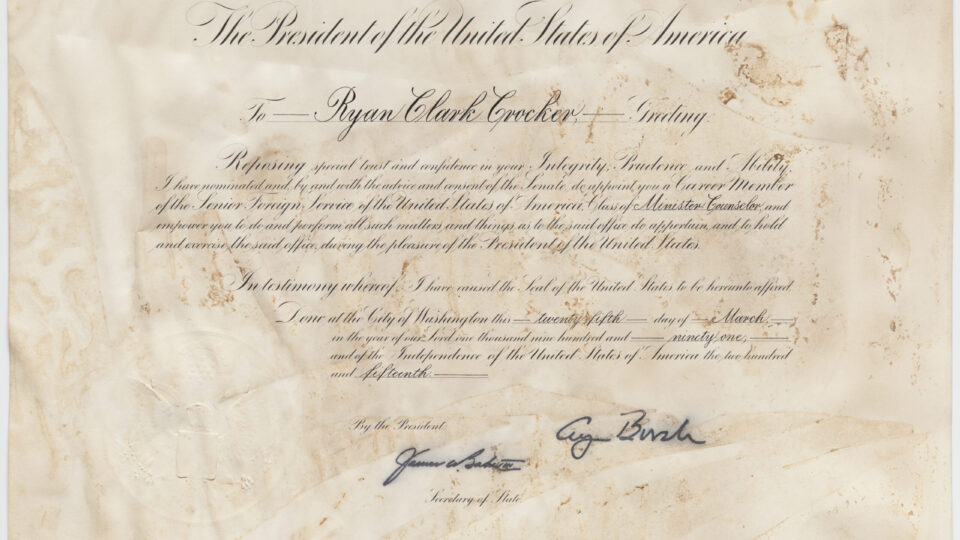 The President of the United States of America
To — Ryan Clark Crocker, — Greeting:
Reposing special trust and confidence in your Integrity, Prudence and Ability,
I have nominated and, by and with the advice and consent of the Senate, do appoint you a Career Member
of the Senior Foreign Service of the United States of America, Class of Minister Counselor, and
empower you to do and perform all such matters and things as to the said office do appertain, and to hold
and exercise the said office, during the pleasure of the President of the United States.
In testimony whereof, I have caused the Seal of the United States to be hereunto affixed.
Done at the City of Washington this — twenty fifth — day of — March, —
in the year of our Lord one thousand nine hundred and — ninety one, —
and of the Independence of the United States of America the two hundred
and fifteenth. —
By the President:
Secretary of State.